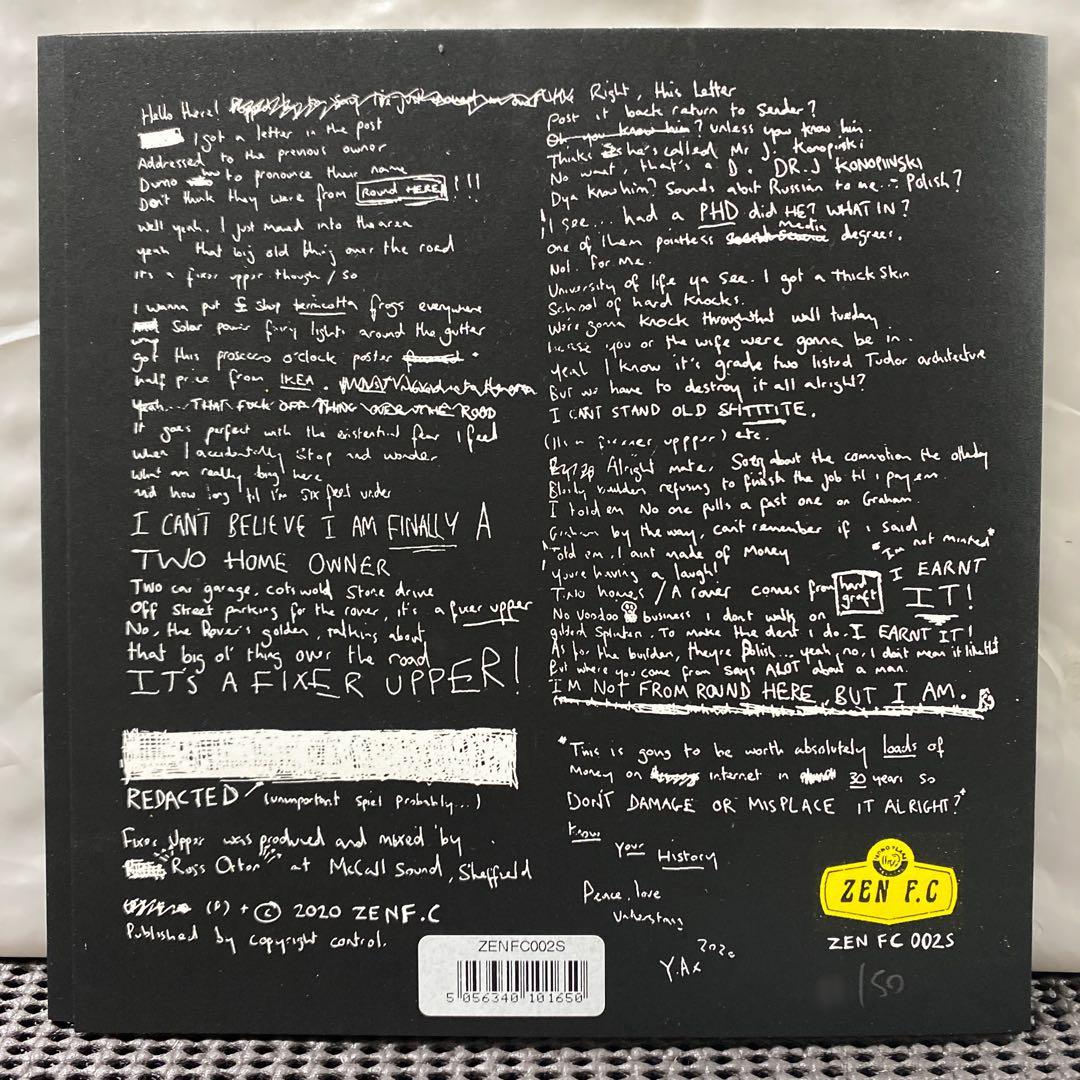 Hello There!
I got a letter in the post
Addressed to the previous owner
Dunno how to pronounce their name
Don't think they were from ROUND HERE!!!
Well yeah, I just moved into the area
yeah that big old thing over the road
its a fixer upper though / so
I wanna put £ shop terricotta frogs everywhere
Solar power fairy lights around the gutter
got this prosecco o'clock poster
half price from IKEA.
Yeah... THAT FUCK OFF THING OVER THE ROAD
It goes perfect with the existential fear I feel
when I accidentally stop and wonder
what am really doing here
and how long 'til I'm six feet under
I CANT BELIEVE I AM FINALLY A
TWO HOME OWNER
Two car garage, cotswold stone drive
Off street parking for the rover, it's a fixer upper
No, the Rover's golden, talking about
that big ol' thing over the road
IT'S A FIXER UPPER!
REDACTED (unimportant spiel probably...)
Fixer Upper was produced and mixed by
Ross Orton at McCall Sound, Sheffield
(P) + © 2020 ZENF.C
Published by copyright control.
Right, this letter
Post it back return to sender?
Oh you know him? unless you know him.
Thinks he's called Mr J. Konopinski
No wait, that's a D. DR. J KONOPINSKI
Dya know him? Sounds abit Russian to me... Polish?
I see... had a PHD did HE? WHAT IN?
one of them pointless media degrees.
Not. for me.
University of life ya see. I got a thick skin
School of hard knocks.
We're gonna knock through that wall tuesday
you or the wife were gonna be in.
yeah I know it's grade two listed Tudor architecture
But we have to destroy it all alright?
I CANT STAND OLD SHTITITE.
(Its a fixer upppr) etc.
Alright mate, Sorry about the commotion the otherday
Bloody builders refusing to finish the job til i pay em.
I told em No one pulls a fast one on Graham.
Graham by the way, can't remember if i said
Told em, I aint made of Money *I'm not minted*
You're having a laugh!
Two homes / A rover comes from hard graft I EARNT IT!
No Voodoo business i dont walk on
gilded Splinters. To make the dent i do. I EARNT IT!
As for the builders, they're Polish... yeah, no, I don't mean it like that
But where you come from says ALOT about a man.
I'M NOT FROM ROUND HERE, BUT I AM.
*This is going to be worth absolutely loads of
Money on internet in 30 years so
DON'T DAMAGE OR MISPLACE IT ALRIGHT?*
Know
Your
History
Peace, love
Understang
Y.Ax 2020
ZEN F.C
ZEN FC 002S
/50
ZENFC002S
5 056340 101650